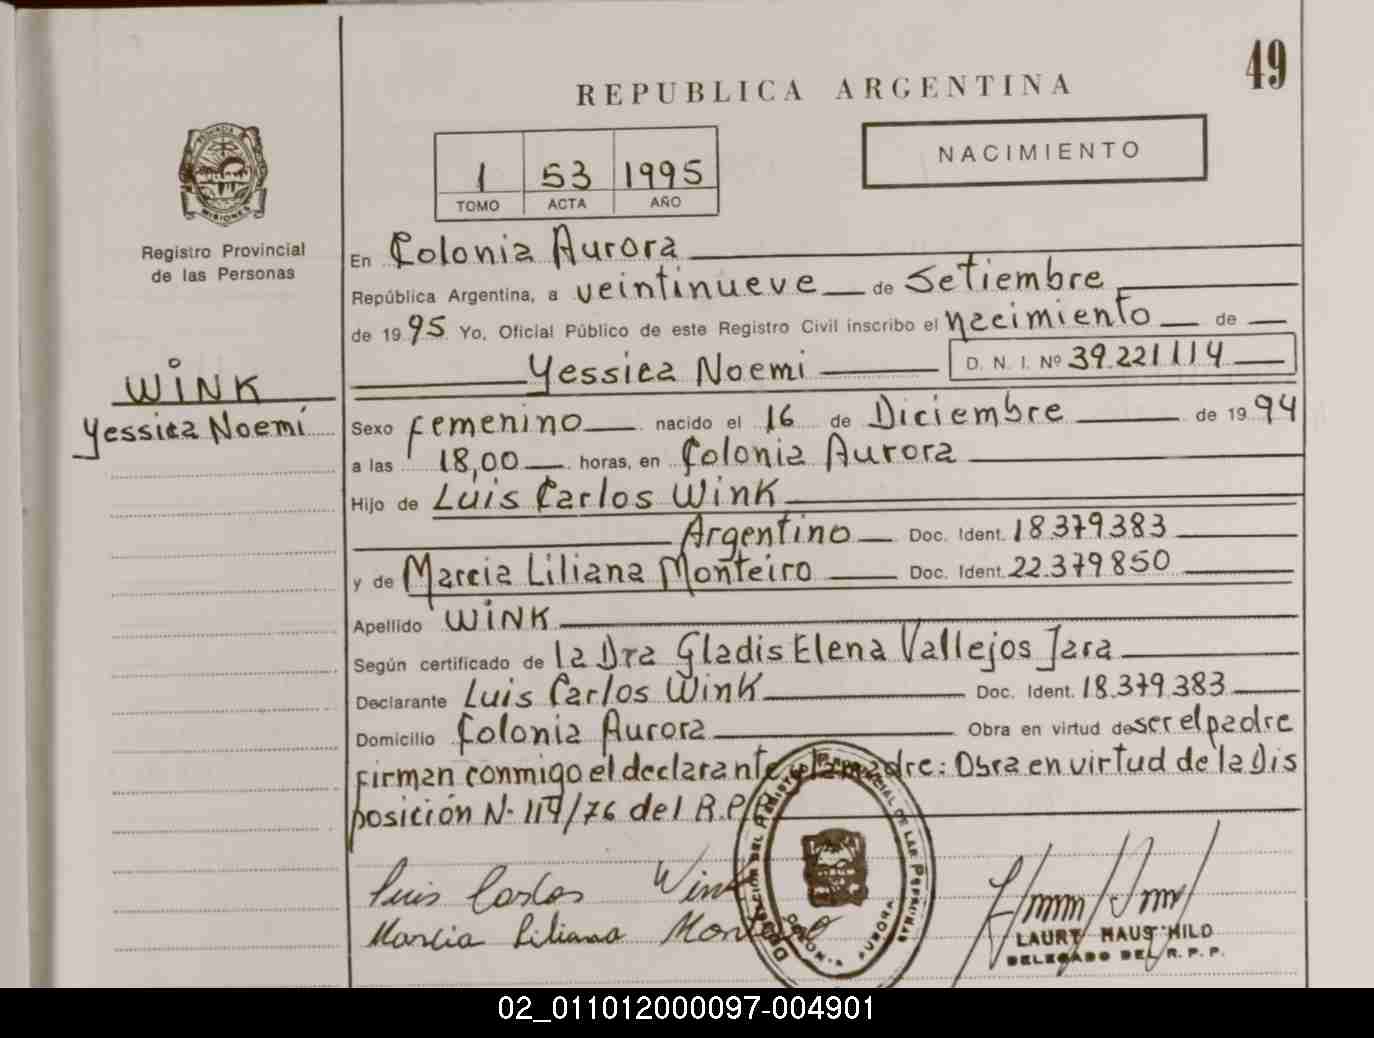 49
REPUBLICA ARGENTINA
NACIMIENTO
1 53 1995
TOMO ACTA AÑO
MISIONES
Registro Provincial
de las Personas
WINK
Yessica Noemí
En Colonia Aurora
República Argentina, a veintinueve de Setiembre
de 1995 Yo, Oficial Público de este Registro Civil inscribo el nacimiento de
Yessica Noemi D. N. I. Nº 39.221114
Sexo femenino nacido el 16 de Diciembre de 1994
a las 18,00 horas, en Colonia Aurora
Hijo de Luis Carlos Wink
Argentino Doc. Ident. 18.379.383
y de Marcia Liliana Monteiro Doc. Ident. 22.379.850
Apellido WINK
Según certificado de la Dra Gladis Elena Vallejos Jara
Declarante Luis Carlos Wink Doc. Ident. 18.379.383
Domicilio Colonia Aurora Obra en virtud de ser el padre
firman conmigo el declarante y la madre: Obra en virtud de la Dis
posición N- 119/76 del R.P.P.
Luis Carlos Wink
Marcia Liliana Monteiro
REGISTRO PROVINCIAL DE LAS PERSONAS
COLONIA AURORA
DELEGADO DEL R. P. P.
02_011012000097-004901